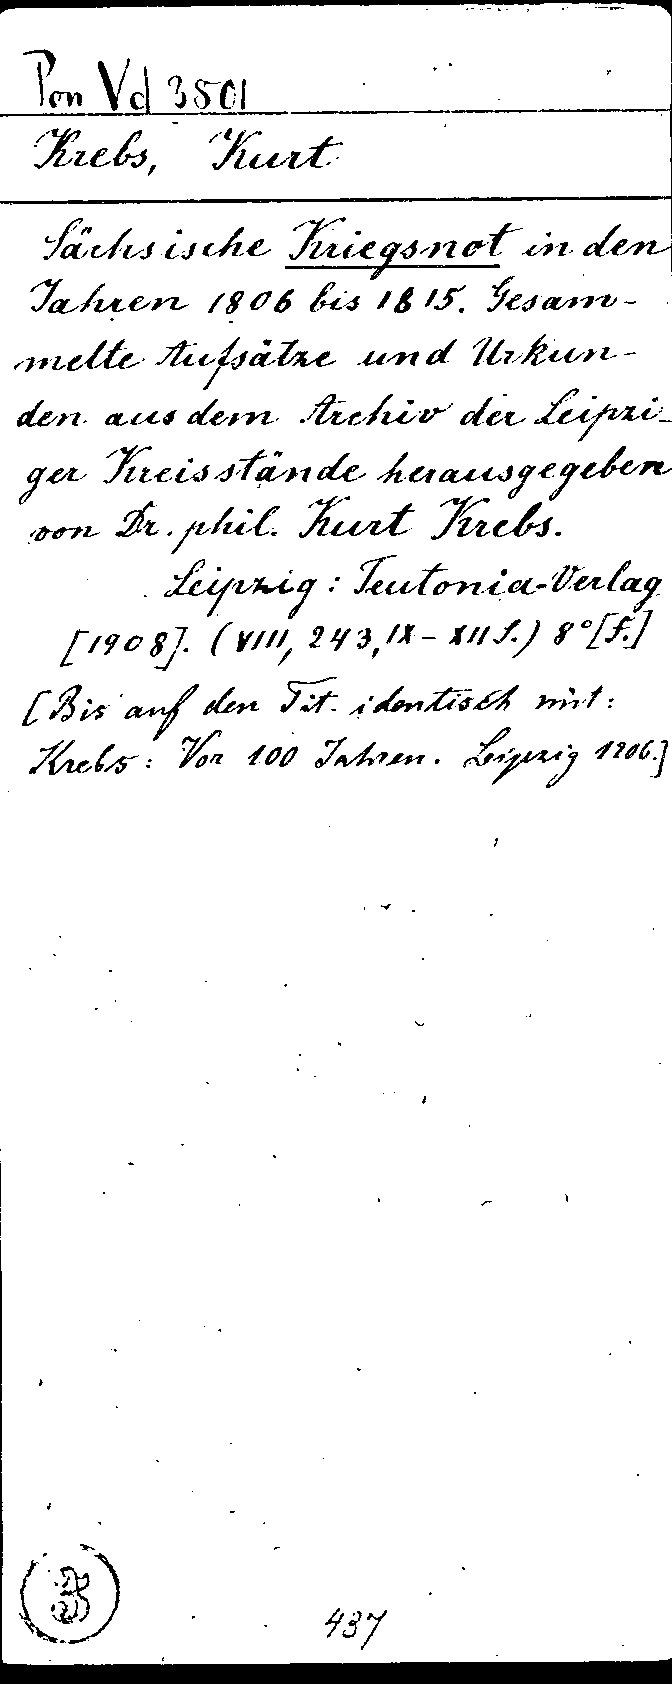 Pon Vd 3501
Krebs, Kurt
Sächsische Kriegsnot in den
Jahren 1806 bis 1815. Gesam-
melte Aufsätze und Urkun-
den aus dem Archiv der Leipzi-
ger Kreisstände herausgegeben
von Dr. phil. Kurt Krebs.
Leipzig: Teutonia-Verlag
[1908]. (VIII, 243, IX-XII S.) 8° [F.]
[Bis auf den Tit. identisch mit:
Krebs: Vor 100 Jahren. Leipzig 1906.]
437